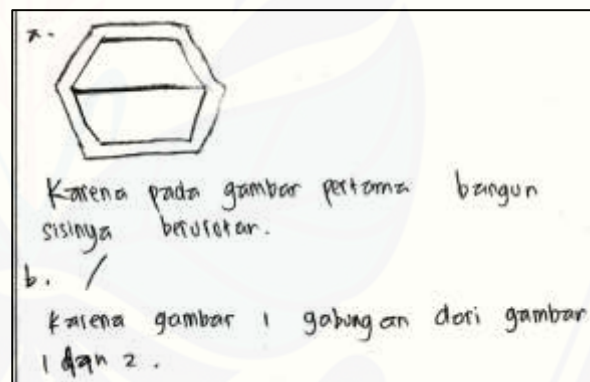 a.
Karena pada gambar pertama bangun
sisinya berurutan.
b. /
Karena gambar 1 gabungan dari gambar
1 dan 2.